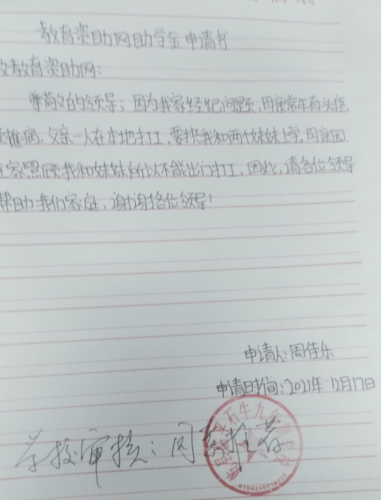 教育资助网助学金申请书
教教育资助网:
尊敬的领导:因为我家经纪问题,母亲常年有头疼
颈椎病,父亲一人在本地打工,要供我和两个妹妹上学,母亲因
在家照顾我和妹妹们从不能出门打工,因此,请各位领导
帮助我们家庭,谢谢各位领导!
申请人:周佳乐
申请日时间:2021年12月17日
学校审核:同意推荐